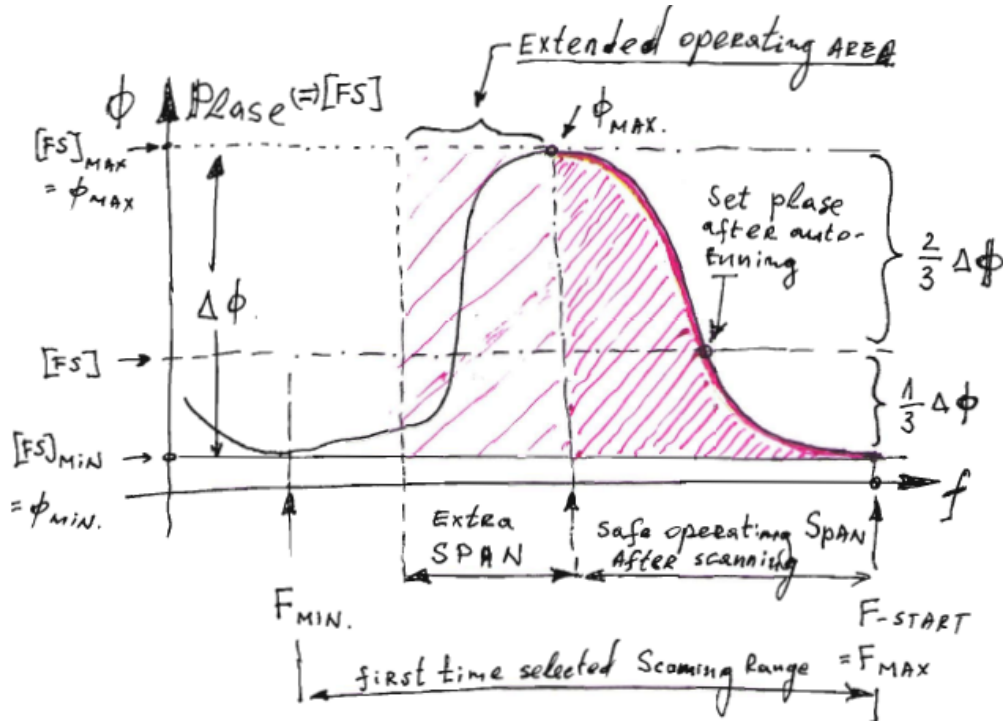 Extended operating AREA
ϕ Plase (=) [FS]
ϕ MAX.
[FS] MAX
= ϕ MAX
Set plase
after auto-
tunning
2/3 Δϕ
Δϕ
[FS]
1/3 Δϕ
[FS] MIN
= ϕ MIN.
f
Extra
SPAN
Safe operating SpAN
After scanning
F MIN.
F-START
= F MAX
first time selected Scanning Range